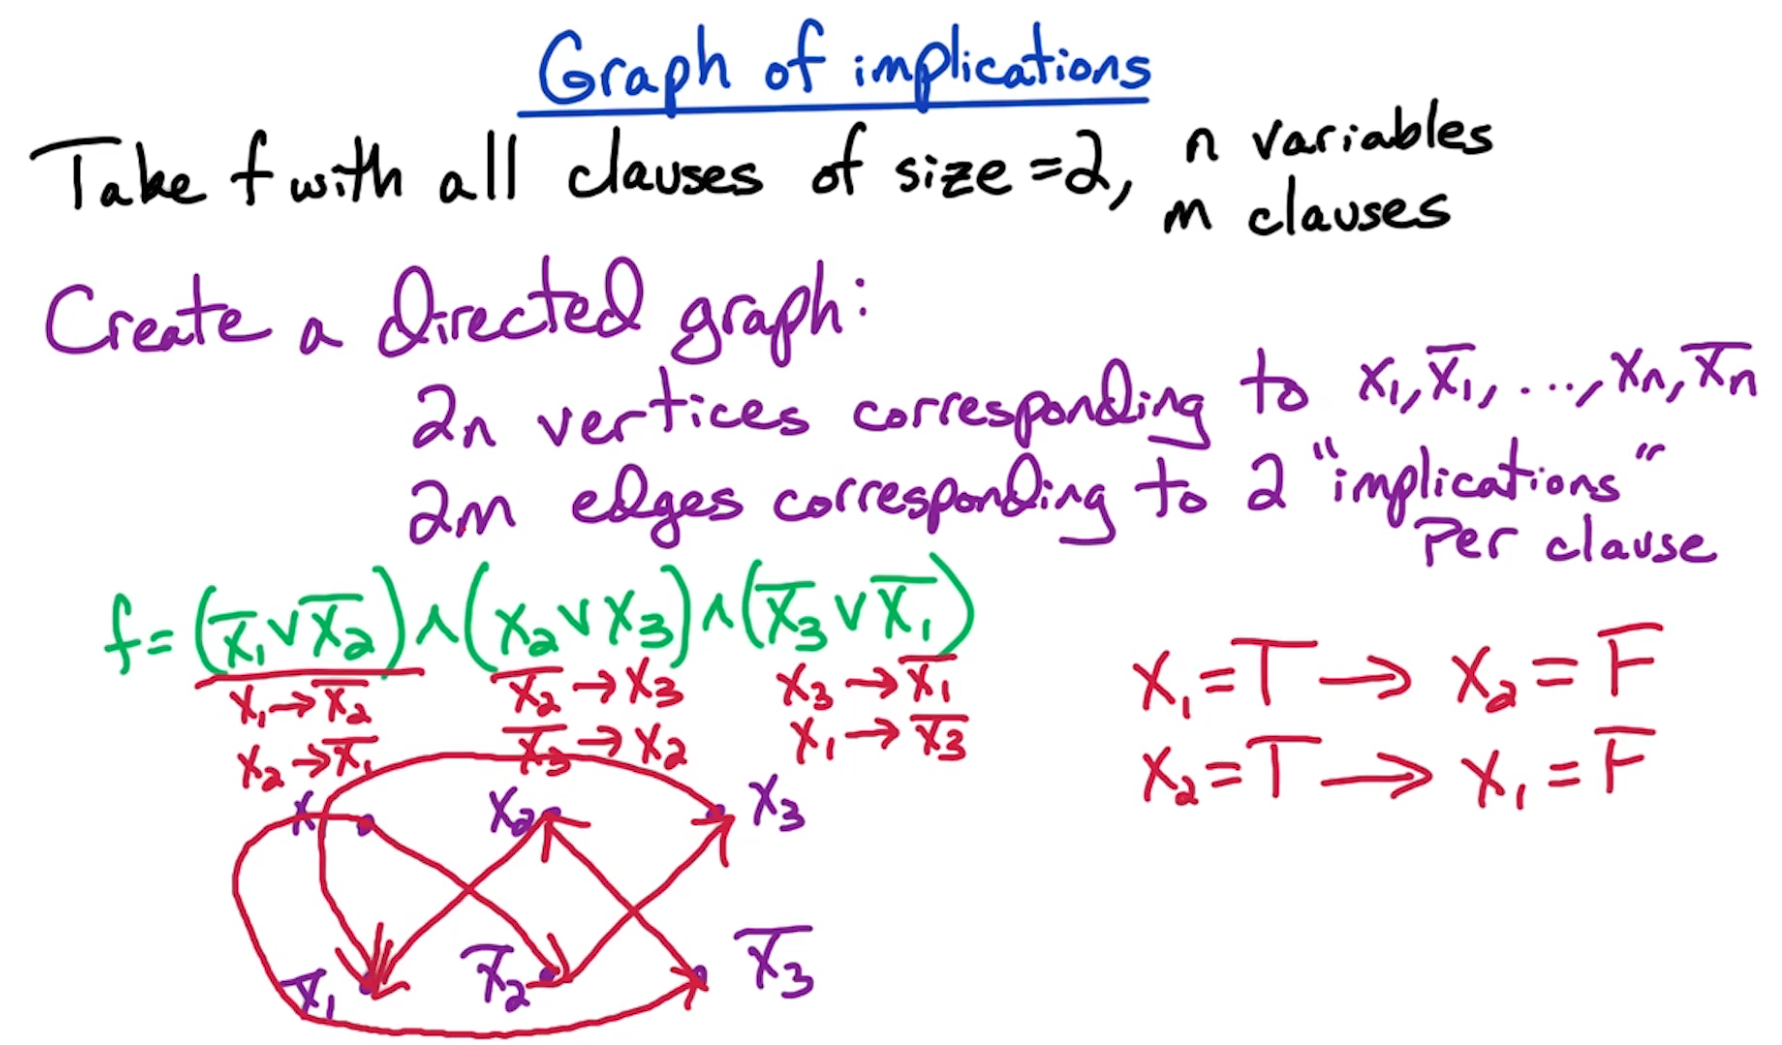 Graph of implications
Take f with all clauses of size =2, n variables
m clauses
Create a directed graph:
2n vertices corresponding to x₁, x̅₁, ..., xₙ, x̅ₙ
2m edges corresponding to 2 "implications"
Per clause
f = (x̅₁ ∨ x̅₂) ∧ (x₂ ∨ x₃) ∧ (x̅₃ ∨ x̅₁)
x₁ → x̅₂ x̅₂ → x₃ x₃ → x̅₁
x₂ → x̅₁ x̅₃ → x₂ x₁ → x̅₃
x₁ = T → x₂ = F
x₂ = T → x₁ = F
x x₂ x₃
x̅₁ x̅₂ x̅₃